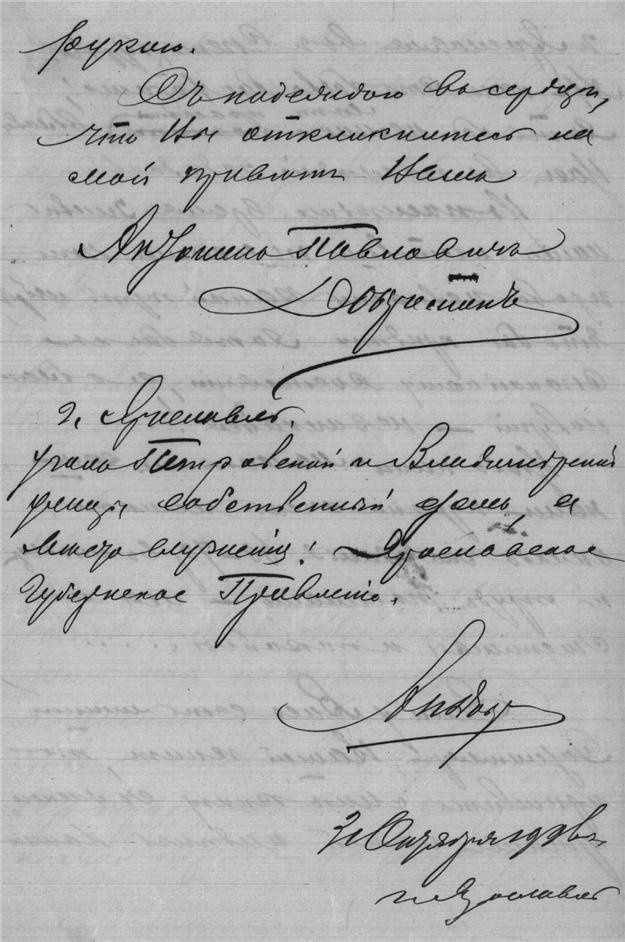 рукою.
Съ надеждою въ сердцѣ,
что Вы откликнитесь на
мой привѣтъ Вашъ
Антонинъ Павловичъ
г. Ярославль.
уголъ Петровской и Владимірской
улицъ, собственный домъ, а
мѣсто служенія: Ярославское
Губернское Правленіе.
Октября
г. Ярославль